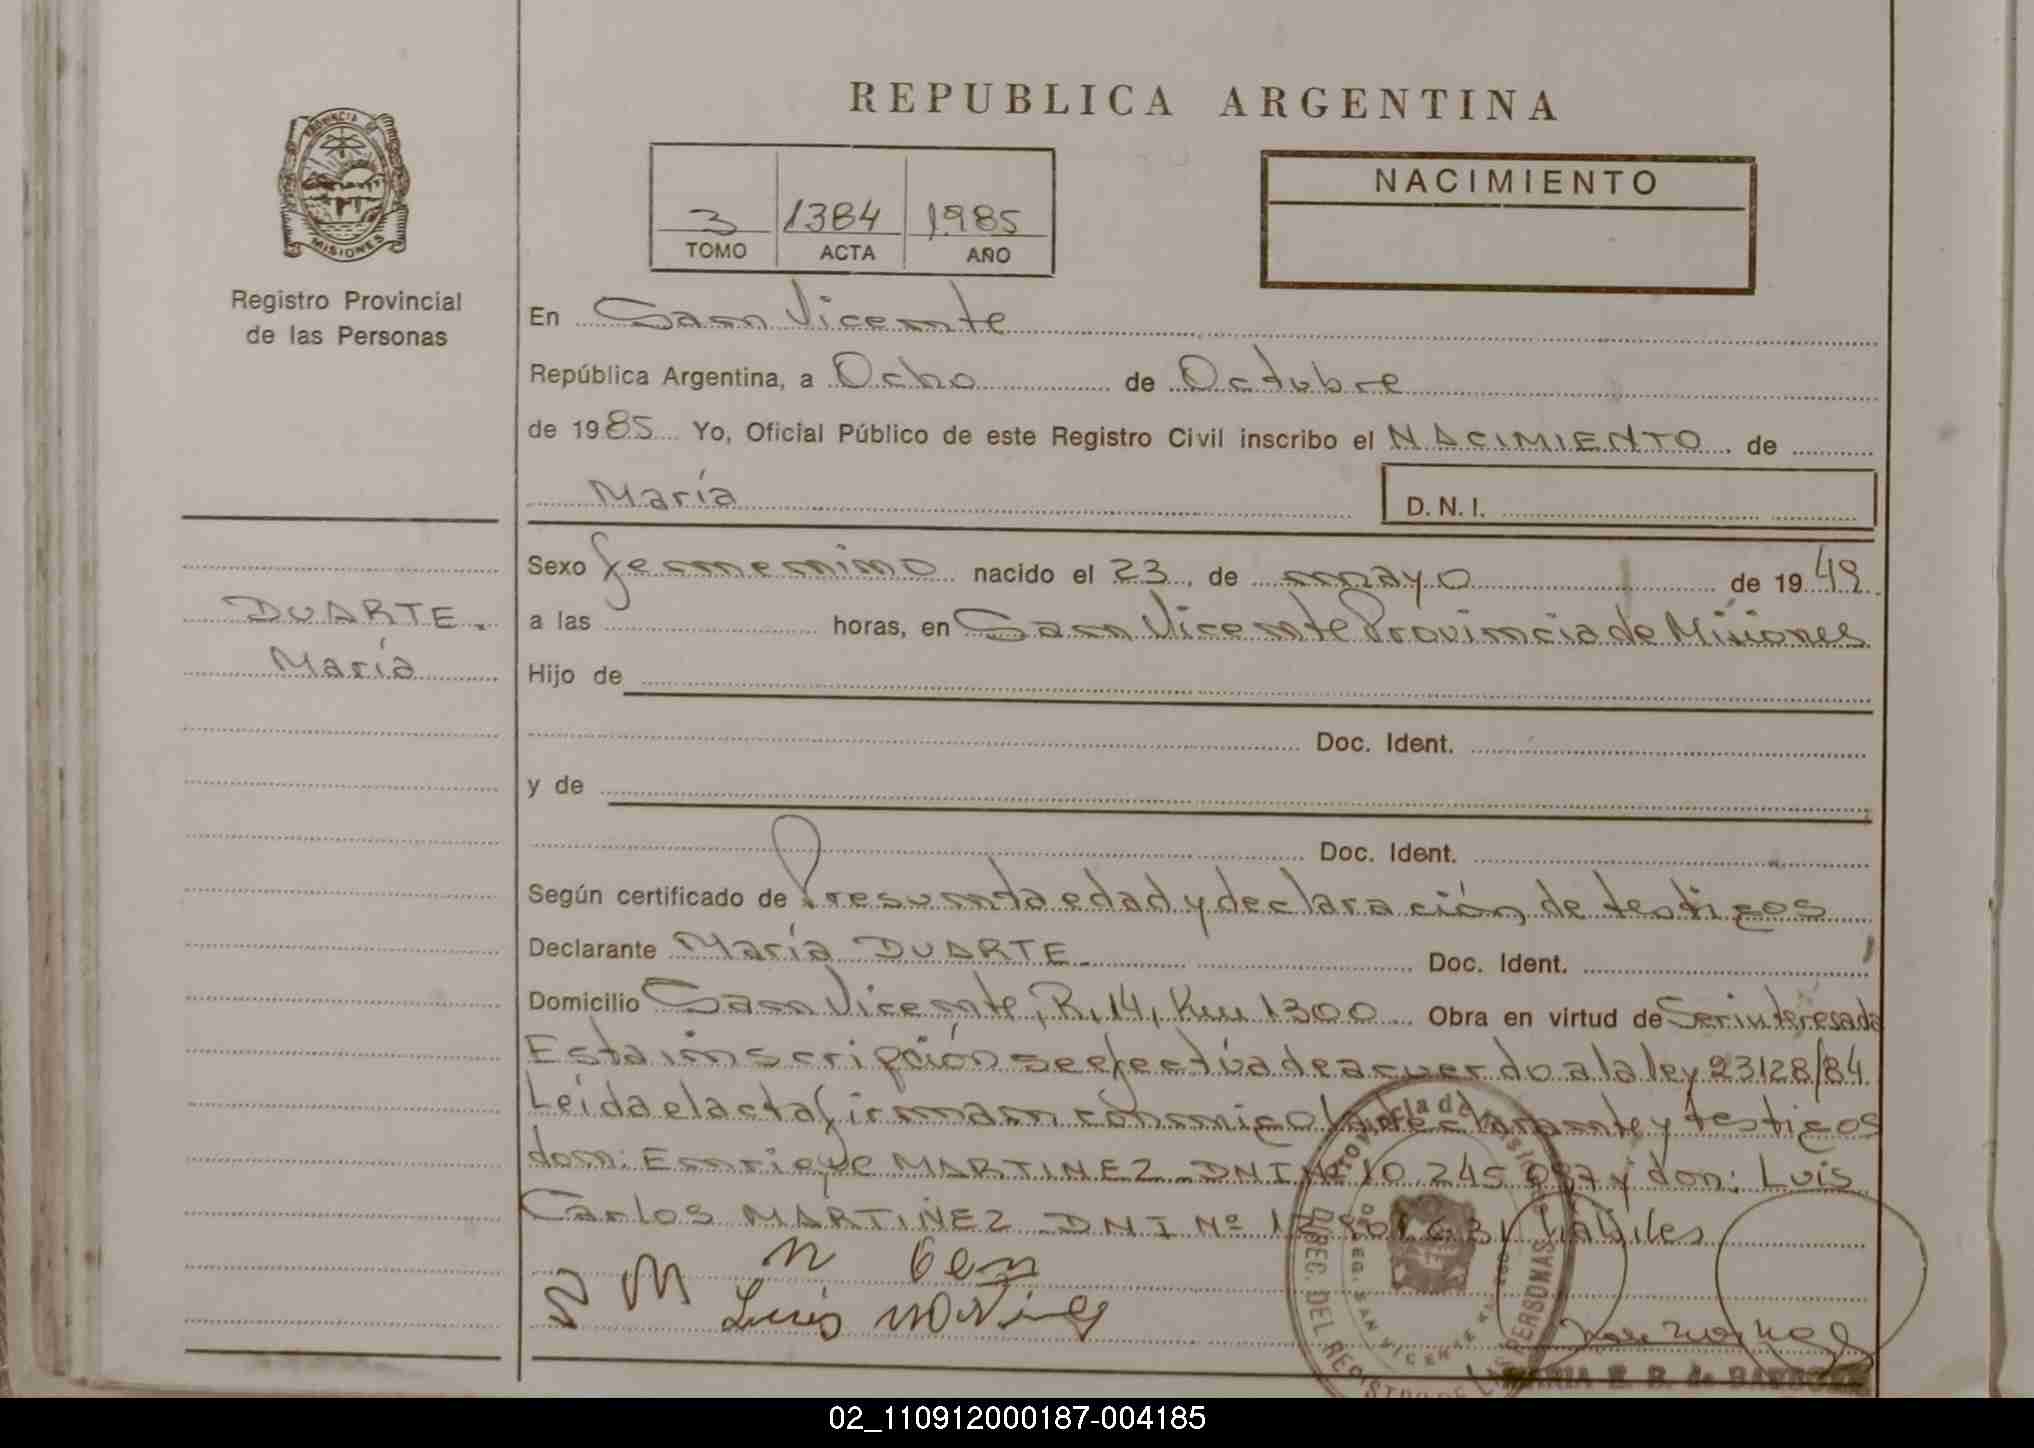 REPUBLICA ARGENTINA
PROVINCIA DE
MISIONES
Registro Provincial
de las Personas
3 1384 1985
TOMO ACTA AÑO
NACIMIENTO
En San Vicente
República Argentina, a Ocho de Octubre
de 1985 Yo, Oficial Público de este Registro Civil inscribo el NACIMIENTO de
María
D. N. I.
DUARTE.
María
Sexo femenino nacido el 23, de mayo de 1949.
a las horas, en San Vicente Provincia de Misiones
Hijo de
Doc. Ident.
y de
Doc. Ident.
Según certificado de Presunta edad y declaración de testigos
Declarante María DUARTE. Doc. Ident.
Domicilio San Vicente, R, 14, Km 1300 Obra en virtud de Ser interesada
Esta inscripción se efectúa de acuerdo a la ley 23128/84.
Leida el acta firman conmigo la declarante y testigos
don: Enrique MARTINEZ DNI Nº 10.245.097 y don: Luis
Carlos MARTINEZ DNI Nº habiles
Luis
Provincia de Misiones
DIREC. DEL REGISTRO DE LAS PERSONAS
SAN VICENTE
MARIA E. B. de
02_110912000187-004185